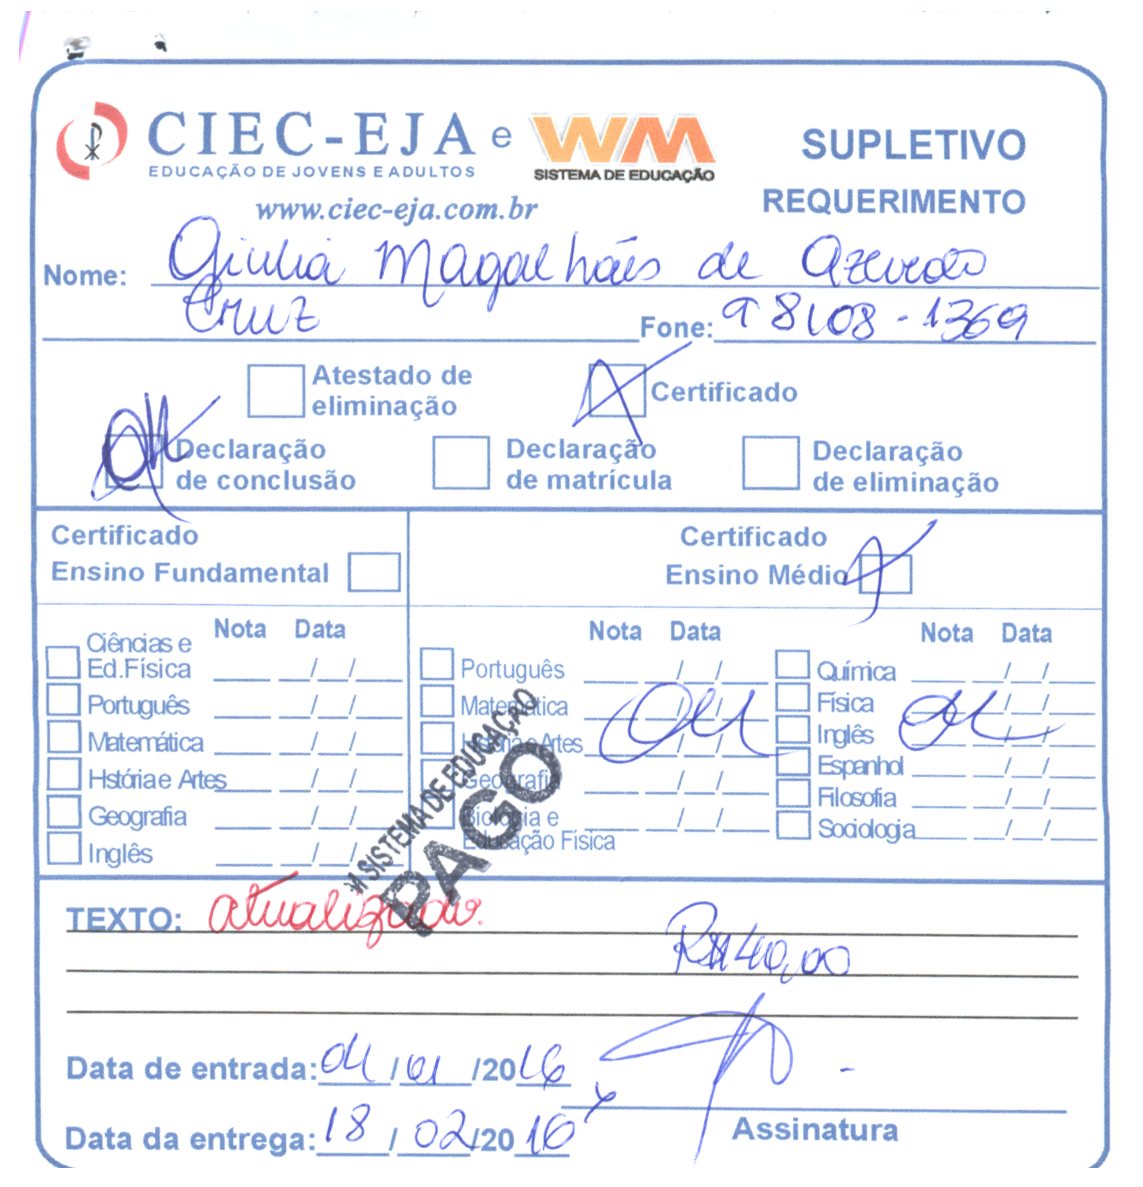 CIEC-EJA e WM
EDUCAÇÃO DE JOVENS E ADULTOS
SISTEMA DE EDUCAÇÃO
www.ciec-eja.com.br
SUPLETIVO
REQUERIMENTO
Nome: Giulia Magalhães de Azevedo
Cruz Fone: 98108-1369
Atestado de eliminação
Certificado
Declaração de conclusão
Declaração de matrícula
Declaração de eliminação
Certificado
Ensino Fundamental
Nota Data
Ciências e Ed.Física ____ __/__/__
Português ____ __/__/__
Matemática ____ __/__/__
História e Artes ____ __/__/__
Geografia ____ __/__/__
Inglês ____ __/__/__
Certificado
Ensino Médio
Nota Data
Português ____ __/__/__
Matemática ____ __/__/__
História e Artes ____ __/__/__
Geografia ____ __/__/__
Biologia e Educação Física ____ __/__/__
Nota Data
Química ____ __/__/__
Física ____ __/__/__
Inglês ____ __/__/__
Espanhol ____ __/__/__
Filosofia ____ __/__/__
Sociologia ____ __/__/__
SISTEMA DE EDUCAÇÃO
PAGO
TEXTO: atualizado.
R$ 40,00
Data de entrada: 04/01/2016
Data da entrega: 18/02/2016
Assinatura